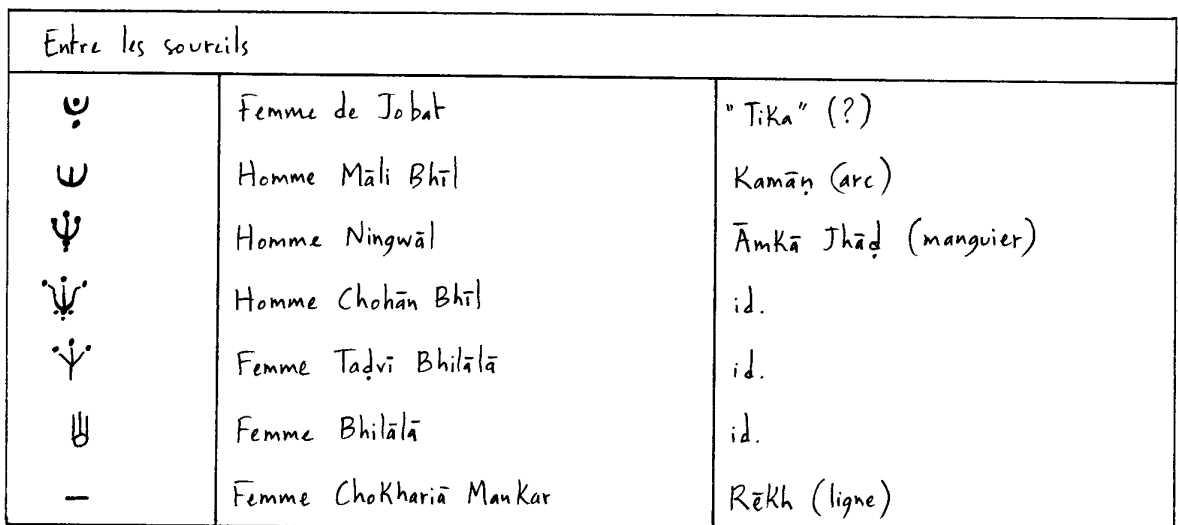 Entre les sourcils
Femme de Jobat "Tika" (?)
Homme Māli Bhīl Kamāṇ (arc)
Homme Ningwāl Āmkā Jhāḍ (manguier)
Homme Chohān Bhīl id.
Femme Taḍvī Bhilālā id.
Femme Bhilālā id.
Femme Chokhariā Mankar Rēkh (ligne)